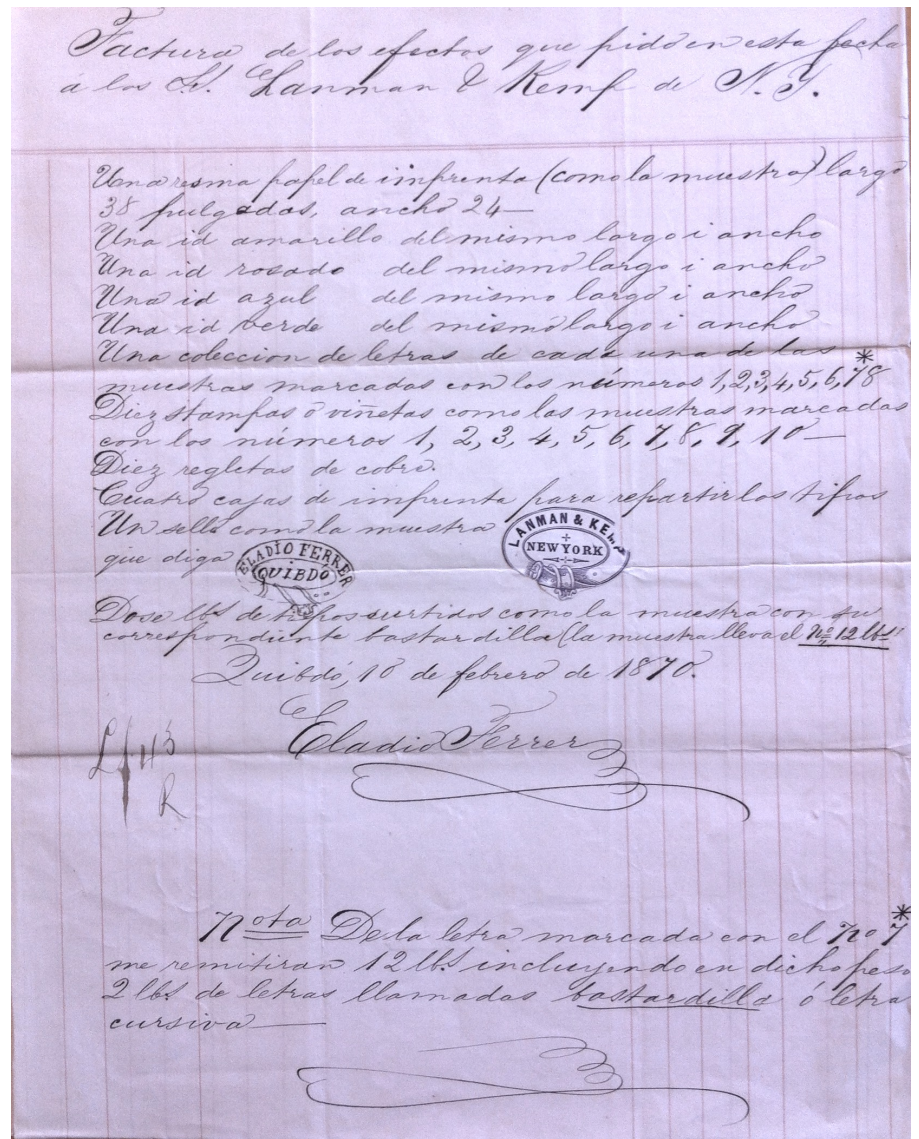 Factura de los efectos que pido en esta fecha
á los S.S. Lanman & Kemp de N. Y.
Una resma papel de imprenta (como la muestra) largo
38 pulgadas, ancho 24—
Una id amarillo del mismo largo i ancho
Una id rosado del mismo largo i ancho
Una id azul del mismo largo i ancho
Una id verde del mismo largo i ancho
Una coleccion de letras de cada una de las
muestras marcadas con los números 1, 2, 3, 4, 5, 6, 7* 8
Diez stampas ó viñetas como las muestras marcadas
con los números 1, 2, 3, 4, 5, 6, 7, 8, 9, 10—
Diez regletas de cobre.
Cuatro cajas de imprenta para repartir los tipos
Un sello como la muestra
LANMAN & KEMP
NEW YORK
que diga
ELADIO FERRER
QUIBDO
Dose lbs de tipos surtidos como la muestra con su
correspondiente bastardilla (la muestra lleva el No 12 lbs
Quibdó, 10 de febrero de 1870.
Eladio Ferrer
R
Nota De la letra marcada con el No 7*
me remitiran 12 lbs incluyendo en dicho peso
2 lbs de letras llamadas bastardilla ó letra
cursiva—